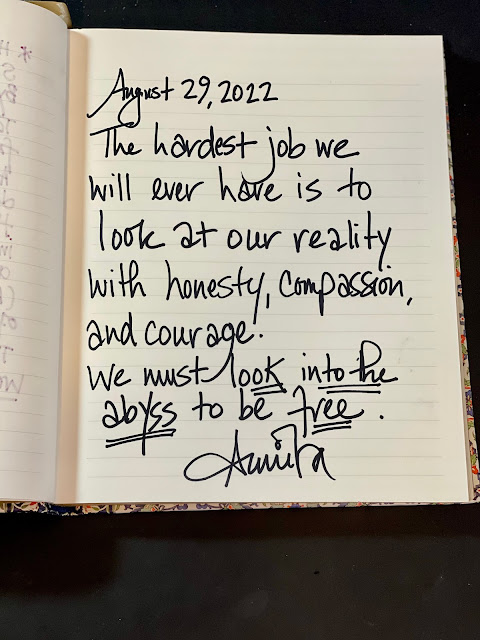 August 29, 2022
The hardest job we
will ever have is to
look at our reality
with honesty, compassion,
and courage.
We must look into the
abyss to be free.